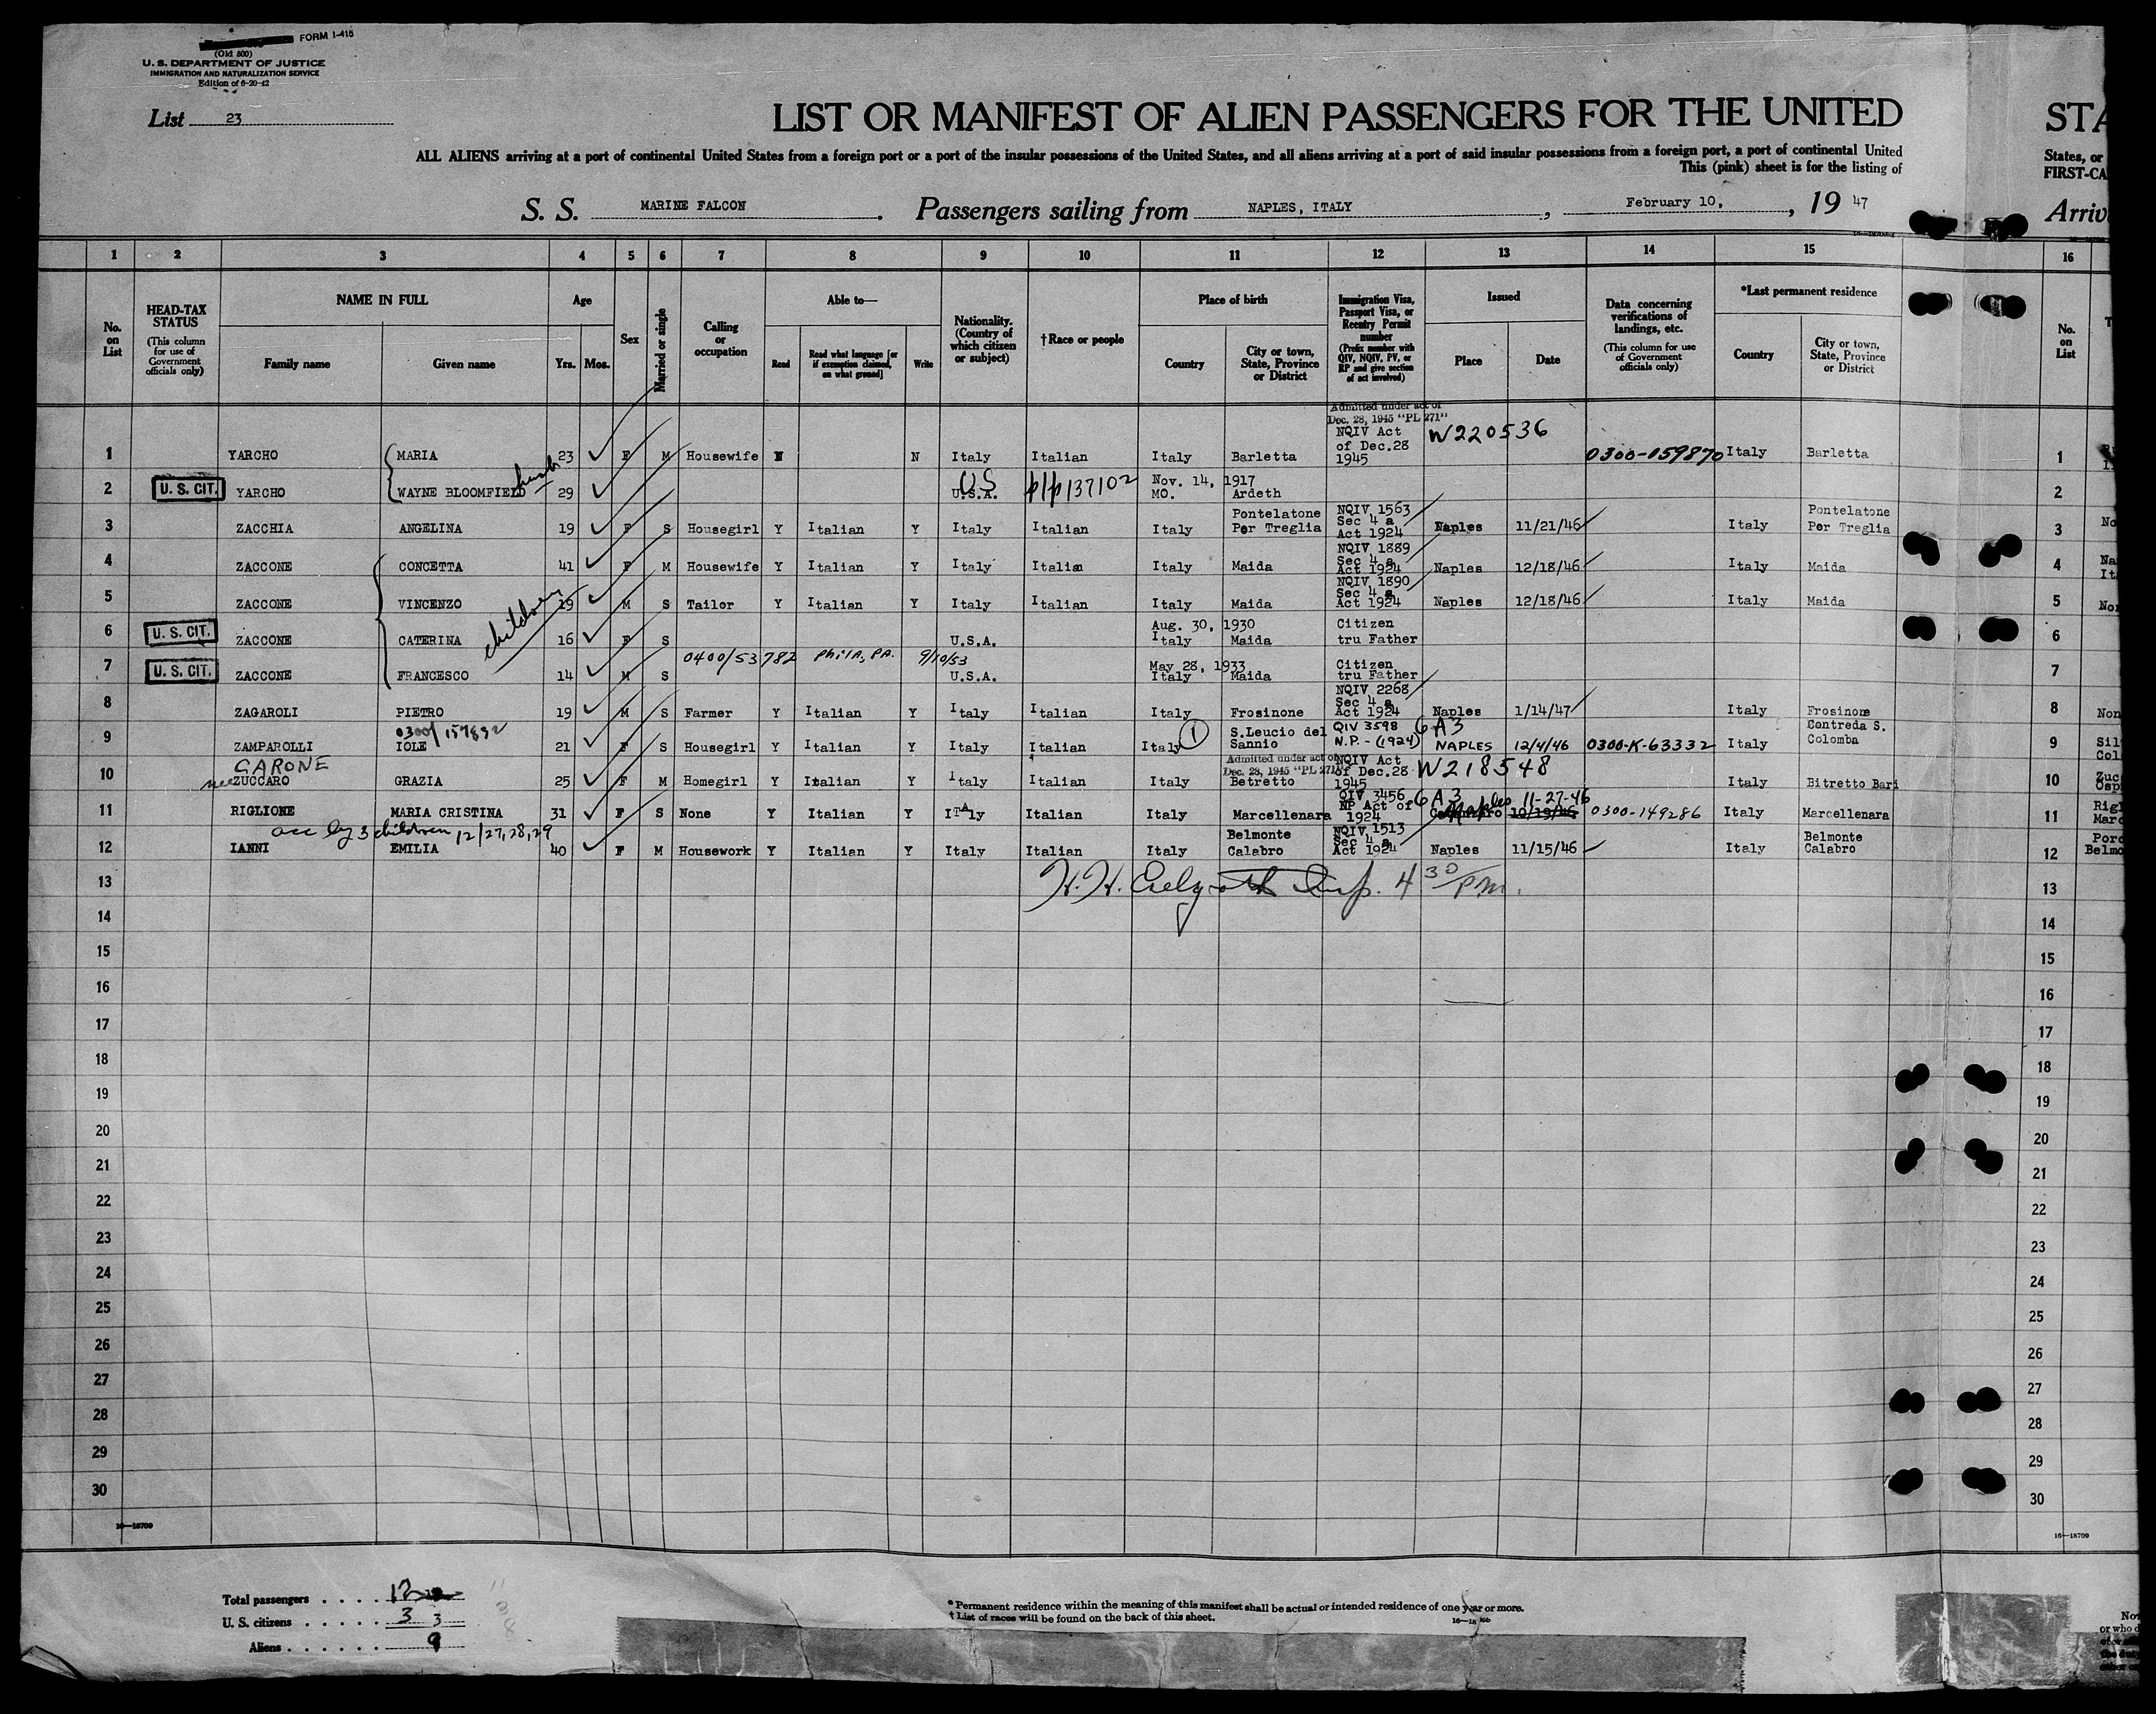 FORM I-415
(Old 500)
U. S. DEPARTMENT OF JUSTICE
IMMIGRATION AND NATURALIZATION SERVICE
Edition of 6-20-42
List 23
LIST OR MANIFEST OF ALIEN PASSENGERS FOR THE UNITED STA
ALL ALIENS arriving at a port of continental United States from a foreign port or a port of the insular possessions of the United States, and all aliens arriving at a port of said insular possessions from a foreign port, a port of continental United States, or
This (pink) sheet is for the listing of FIRST-CA
S. S. MARINE FALCON. Passengers sailing from NAPLES, ITALY, February 10, 19 47 Arriv
1 2 3 4 5 6 7 8 9 10 11 12 13 14 15 16
No. on List
HEAD-TAX STATUS
(This column for use of Government officials only)
NAME IN FULL
Family name Given name
Age
Yrs. Mos.
Sex
Married or single
Calling or occupation
Able to—
Read Read what language [or if exemption claimed, on what ground] Write
Nationality. (Country of which citizen or subject)
†Race or people
Place of birth
Country City or town, State, Province or District
Immigration Visa, Passport Visa, or Reentry Permit number
(Prefix number with QIV, NQIV, PV, or RP and give section of act involved)
Issued
Place Date
Data concerning verifications of landings, etc.
(This column for use of Government officials only)
*Last permanent residence
Country City or town, State, Province or District
No. on List
Admitted under act of
Dec. 28, 1945 "PL 271"
1 YARCHO MARIA 23 F M Housewife N N Italy Italian Italy Barletta NQIV Act of Dec.28 1945 W220536 0300-059870 Italy Barletta 1
husb
2 U. S. CIT. YARCHO WAYNE BLOOMFIELD 29 US U.S.A. p/p137102 Nov. 14, 1917 MO. Ardeth 2
3 ZACCHIA ANGELINA 19 F S Housegirl Y Italian Y Italy Italian Italy Pontelatone Per Treglia NQIV 1563 Sec 4 a Act 1924 Naples 11/21/46 Italy Pontelatone Per Treglia 3 No
4 ZACCONE CONCETTA 41 F M Housewife Y Italian Y Italy Italian Italy Maida NQIV 1889 Sec 4 a Act 1924 Naples 12/18/46 Italy Maida 4 Na It
children
5 ZACCONE VINCENZO 19 M S Tailor Y Italian Y Italy Italian Italy Maida NQIV 1890 Sec 4 a Act 1924 Naples 12/18/46 Italy Maida 5 Non
6 U. S. CIT. ZACCONE CATERINA 16 F S U.S.A. Aug. 30, 1930 Italy Maida Citizen tru Father 6
0400/53782 PhilA, PA. 9/10/53
7 U. S. CIT. ZACCONE FRANCESCO 14 M S U.S.A. May 28, 1933 Italy Maida Citizen tru Father 7
8 ZAGAROLI PIETRO 19 M S Farmer Y Italian Y Italy Italian Italy Frosinone NQIV 2268 Sec 4 a Act 1924 Naples 1/14/47 Italy Frosinone 8 Non
9 ZAMPAROLLI IOLE 21 F S Housegirl Y Italian Y Italy Italian Italy 1 S.Leucio del Sannio QIV 3598 N.P.-(1924) 6A3 NAPLES 12/4/46 0300-K-63332 Italy Contreda S. Colomba 9 Sil Col
CARONE
Admitted under act of
Dec. 28, 1945 "PL 271"
10 nee ZUCCARO GRAZIA 25 F M Homegirl Y Italian Y Italy Italian Italy Betretto NQIV Act of Dec.28 1945 W218548 Italy Bitretto Bari 10 Zuc Osp
11 RIGLIONE MARIA CRISTINA 31 F S None Y Italian Y ITAly Italian Italy Marcellenara QIV 3456 NP Act of 1924 6A3 Naples 11-27-46 10/19/46 0300-149286 Italy Marcellenara 11 Rigl Marc
acc by 3 children 12/27,28,29
12 IANNI EMILIA 40 F M Housework Y Italian Y Italy Italian Italy Belmonte Calabro NQIV 1513 Sec 4 a Act 1924 Naples 11/15/46 Italy Belmonte Calabro 12 Poro Belmo
13 H.H. Insp. 4 30 PM. 13
14 14
15 15
16 16
17 17
18 18
19 19
20 20
21 21
22 22
23 23
24 24
25 25
26 26
27 27
28 28
29 29
30 30
16—18709 16—18709
Total passengers 12
U. S. citizens 3 3
Aliens 9
* Permanent residence within the meaning of this manifest shall be actual or intended residence of one year or more.
† List of races will be found on the back of this sheet.
or who d